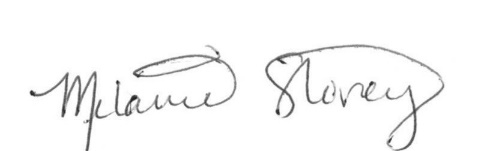 Melanie Storey